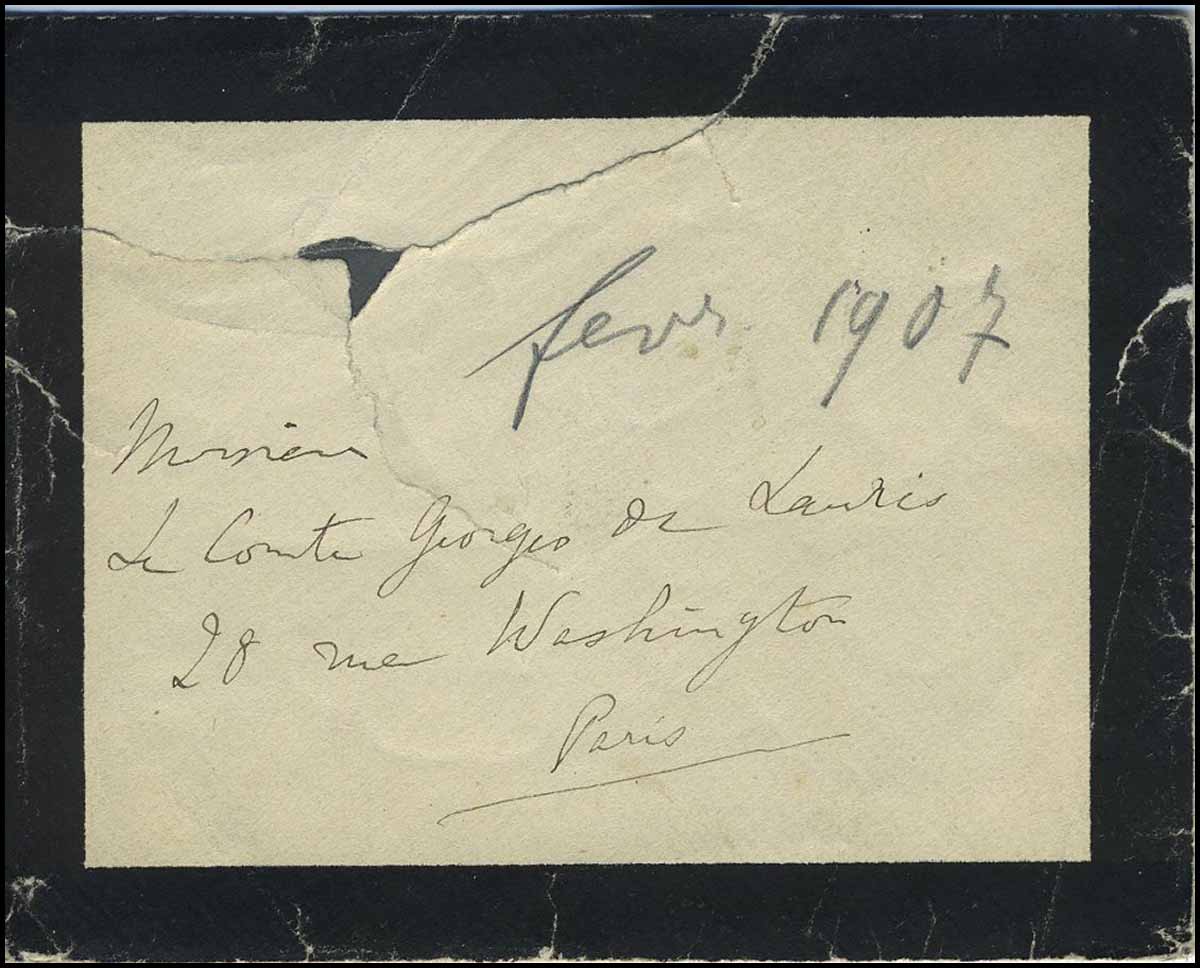 fevr. 1907
Monsieur
Le Comte Georges de Lauris
28 rue Washington
Paris